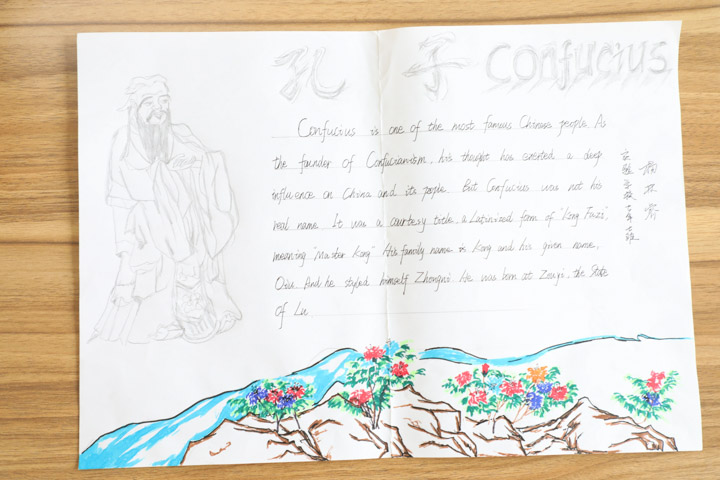 孔子 Confucius
Confucius is one of the most famous Chinese people. As
the founder of Confucianism, his thought has exerted a deep
influence on China and its people. But Confucius was not his
real name. It was a courtesy title, a Latinized form of 'Kong Fuzi',
meaning "Master Kong". His family name is Kong and his given name,
Qiu. And he styled himself Zhongni. He was born at Zouyi, the State
of Lu